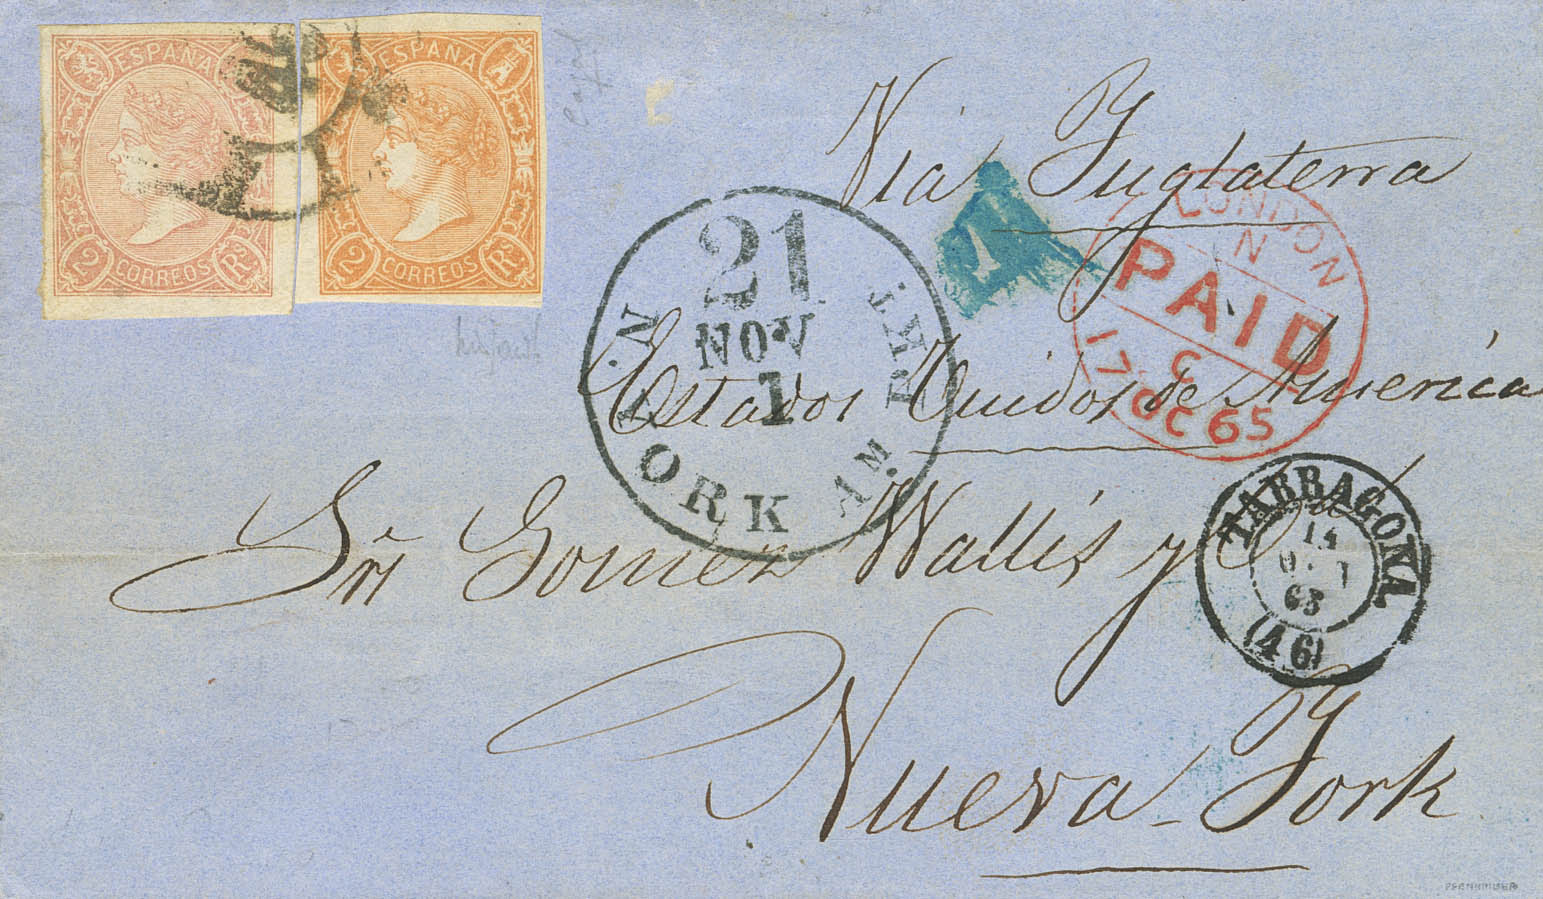 ESPAÑA
2 CORREOS Rs
ESPAÑA
2 CORREOS Rs
Via Inglaterra
LONDON
N
PAID
C
17 OC 65
21
NOV
1
N. YORK AM. PKT.
Estados Unidos de America
TARRAGONA
14
65
(46)
Sres Gomez Wallis y Ca
Nueva-York